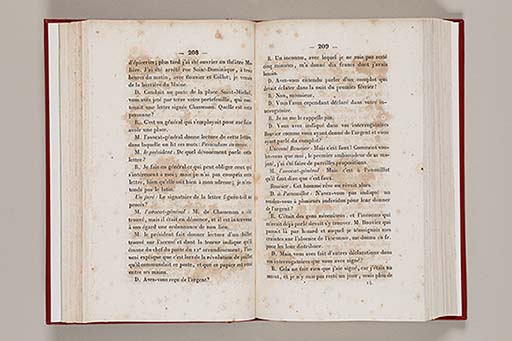 — 208 —
d'épiceries; plus tard j'ai été ouvrier au théâtre Mo-
lière. J'ai été arrêté rue Saint-Dominique, à trois
heures du matin, avec Bouvier et Collet; je venais
de la barrière du Maine.
D. Conduit au poste de la place Saint-Michel,
vous avez jeté par terre votre portefeuille, qui con-
tenait une lettre signée Chasseman. Quelle est cette
personne?
R. C'est un général qui s'employait pour me faire
avoir une place.
M. l'avocat-général donne lecture de cette lettre,
dans laquelle on lit ces mots:
M. le président: De quel dévouement parle cette
lettre?
R. Je fais en général ce qui peut obliger ceux qui
s'intéressent à moi; mais je n'ai pas compris cette
lettre, bien qu'elle soit bien à mon adresse; je n'en-
tends pas le latin.
Un juré: Le signataire de la lettre figure-t-il au
procès?
M. l'avocat-général: M. de Chasseman a été
trouvé, mais il était en démence, et il est intervenu
à son égard une ordonnance de non lieu.
M. le président fait donner lecture d'un billet
trouvé sur l'accusé et dont la teneur indique qu'il
émane du chef du poste du 12e arrondissement; l'ac-
cusé explique que c'est lors de la révolution de juillet
qu'il commandait ce poste, et que ce papier est resté
entre ses mains.
D. Avez-vous reçu de l'argent?
— 209 —
R. Un inconnu, avec lequel je ne suis pas resté
cinq minutes, m'a donné dix francs dont j'avais
besoin.
D. Avez-vous entendu parler d'un complot qui
devait éclater dans la nuit du premier février?
R. Non, monsieur.
D. Vous l'avez cependant déclaré dans votre in-
terrogatoire.
R. Je ne me le rappelle pas.
D. Vous avez indiqué dans vos interrogatoires
Bouvier comme vous ayant donné de l'argent et vous
ayant parlé du complot?
L'accusé Bouvier: Mais c'est faux! Comment vou-
lez-vous que moi, le premier
j'ai été faire de pareilles propositions.
M. l'avocat-général: Mais c'est à
qu'il faut dire que c'est faux.
Bouvier: Cet homme rêve
D. à N'avez-vous pas indiqué un
rendez-vous à plusieurs individus pour leur donner
de l'argent?
R. C'était des gens nécessiteux, et l'inconnu qui
m'avait déjà parlé devait s'y trouver. M. Bouvier qui
passait là par hasard et auquel je témoignais mes
craintes sur l'absence de l'inconnu, me donna
pour les leur distribuer.
D. Mais vous avez fait d'autres déclarations dans
vos interrogatoires que vous avez signé?
R. Cela ne fait rien que j'aie signé, car j'étais
et je n'y suis pas resté un jour, mais plus de